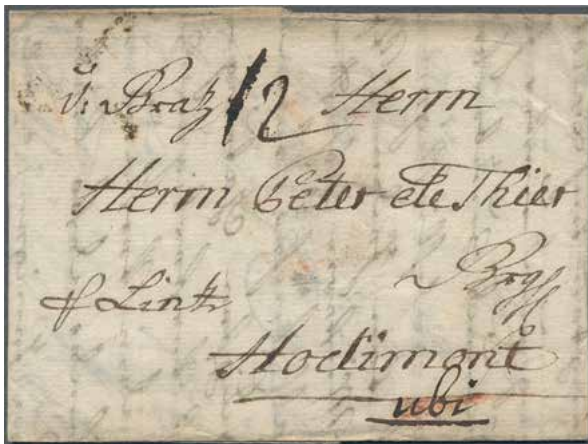 v: Bratz 12 Herrn
Herrn Peter de Thier
p Lintz
Hodimont
ubi